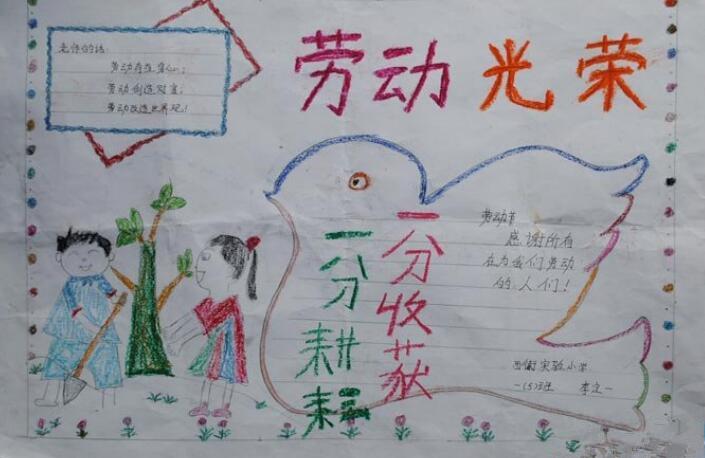 劳动光荣
老师的话:
劳动存在身心;
劳动创造财富;
劳动改造世界观!
一分耕耘
一分收获
劳动节
感谢所有
在为我们劳动
的人们!
实验小学
一(5)班